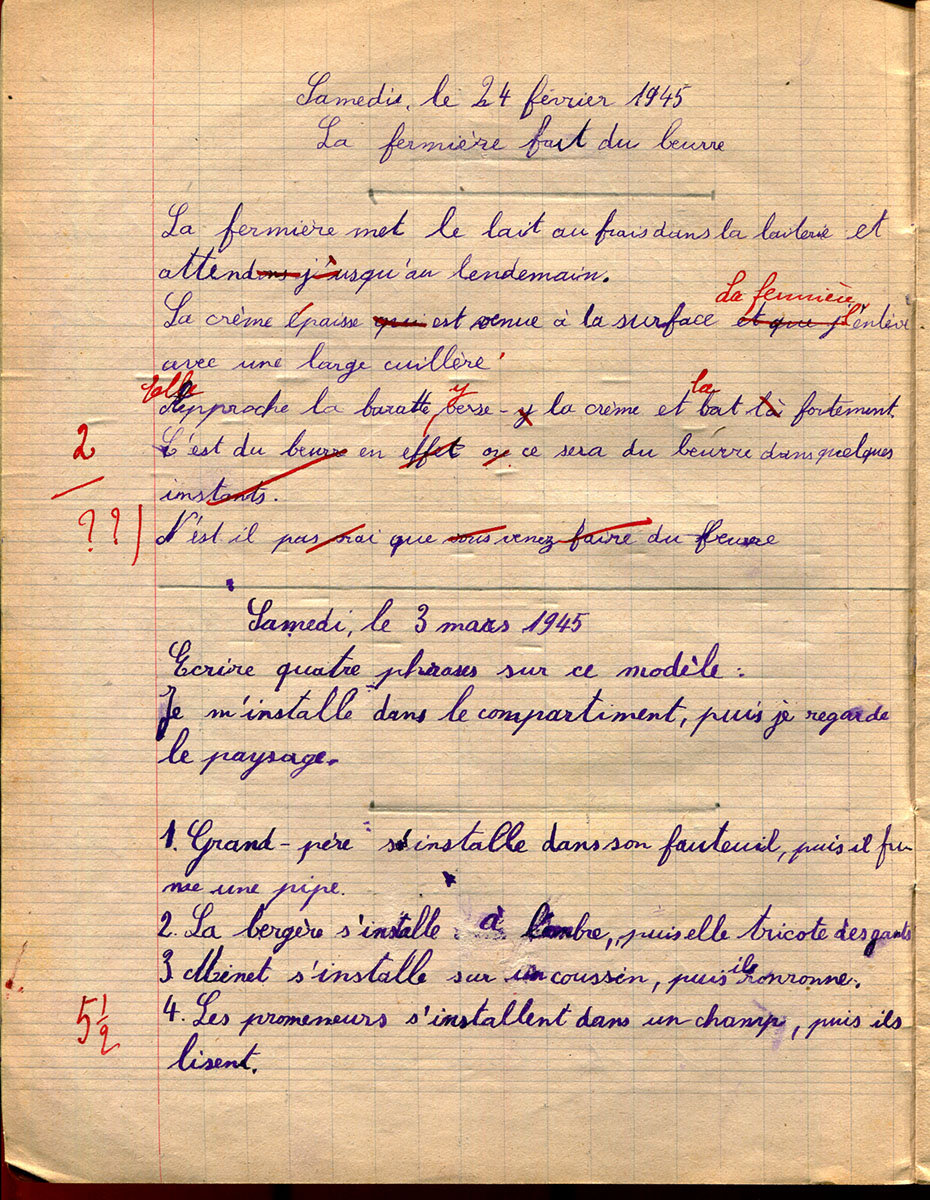 Samedi, le 24 février 1945
La fermière fait du beurre
La fermière met le lait au frais dans la laiterie et
attendons jusqu'au lendemain.
La fermière
La crème épaisse qui est venue à la surface et que j'enlève
avec une large cuillère
Elle y la
Approche la baratte verse-y la crème et bat là fortement.
2 C'est du beurre en effet ou ce sera du beurre dans quelques
instants.
??) N'est il pas vrai que vous venez faire du beurre
Samedi, le 3 mars 1945
Ecrire quatre phrases sur ce modèle :
Je m'installe dans le compartiment, puis je regarde
le paysage.
1. Grand-père s'installe dans son fauteuil, puis il fu-
me une pipe.
2. La bergère s'installe à l'ombre, puis elle tricote des gants
3 Minet s'installe sur un coussin, puis il ronronne.
5 1/2 4. Les promeneurs s'installent dans un champ, puis ils
lisent.